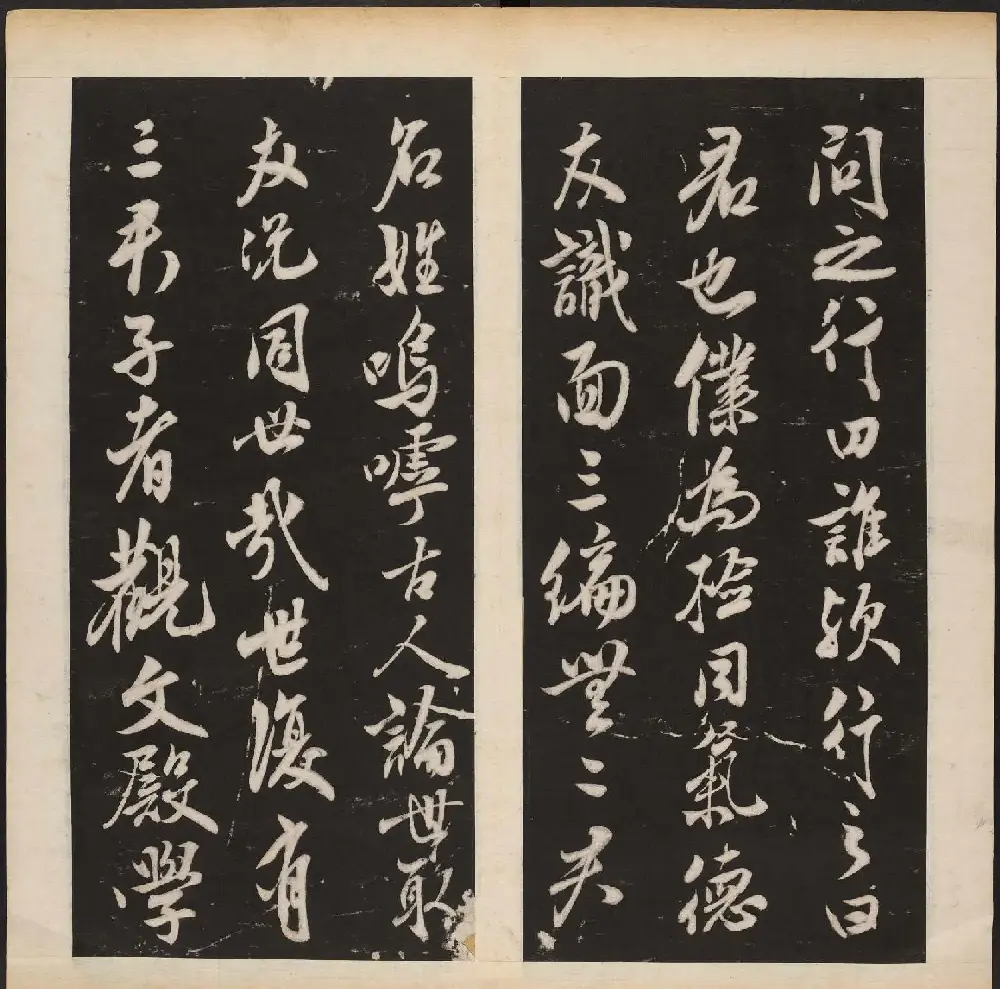 問之行田誰歟行之曰
君也僕為撿同氣德
友識面三編無二夫
名姓嗚嘑古人論世取
友況同世哉世復有
三子者觀文殿學